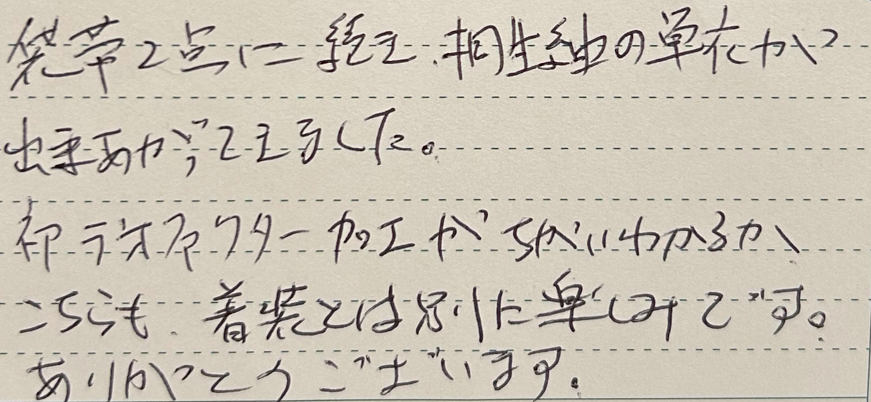 袋帯2点に続き、桐生紬の単衣が
出来あがってきました。
初ラジオアクター加工がちがいわかるか
こちらも、着装とは別に楽しみです。
ありがとうございます。